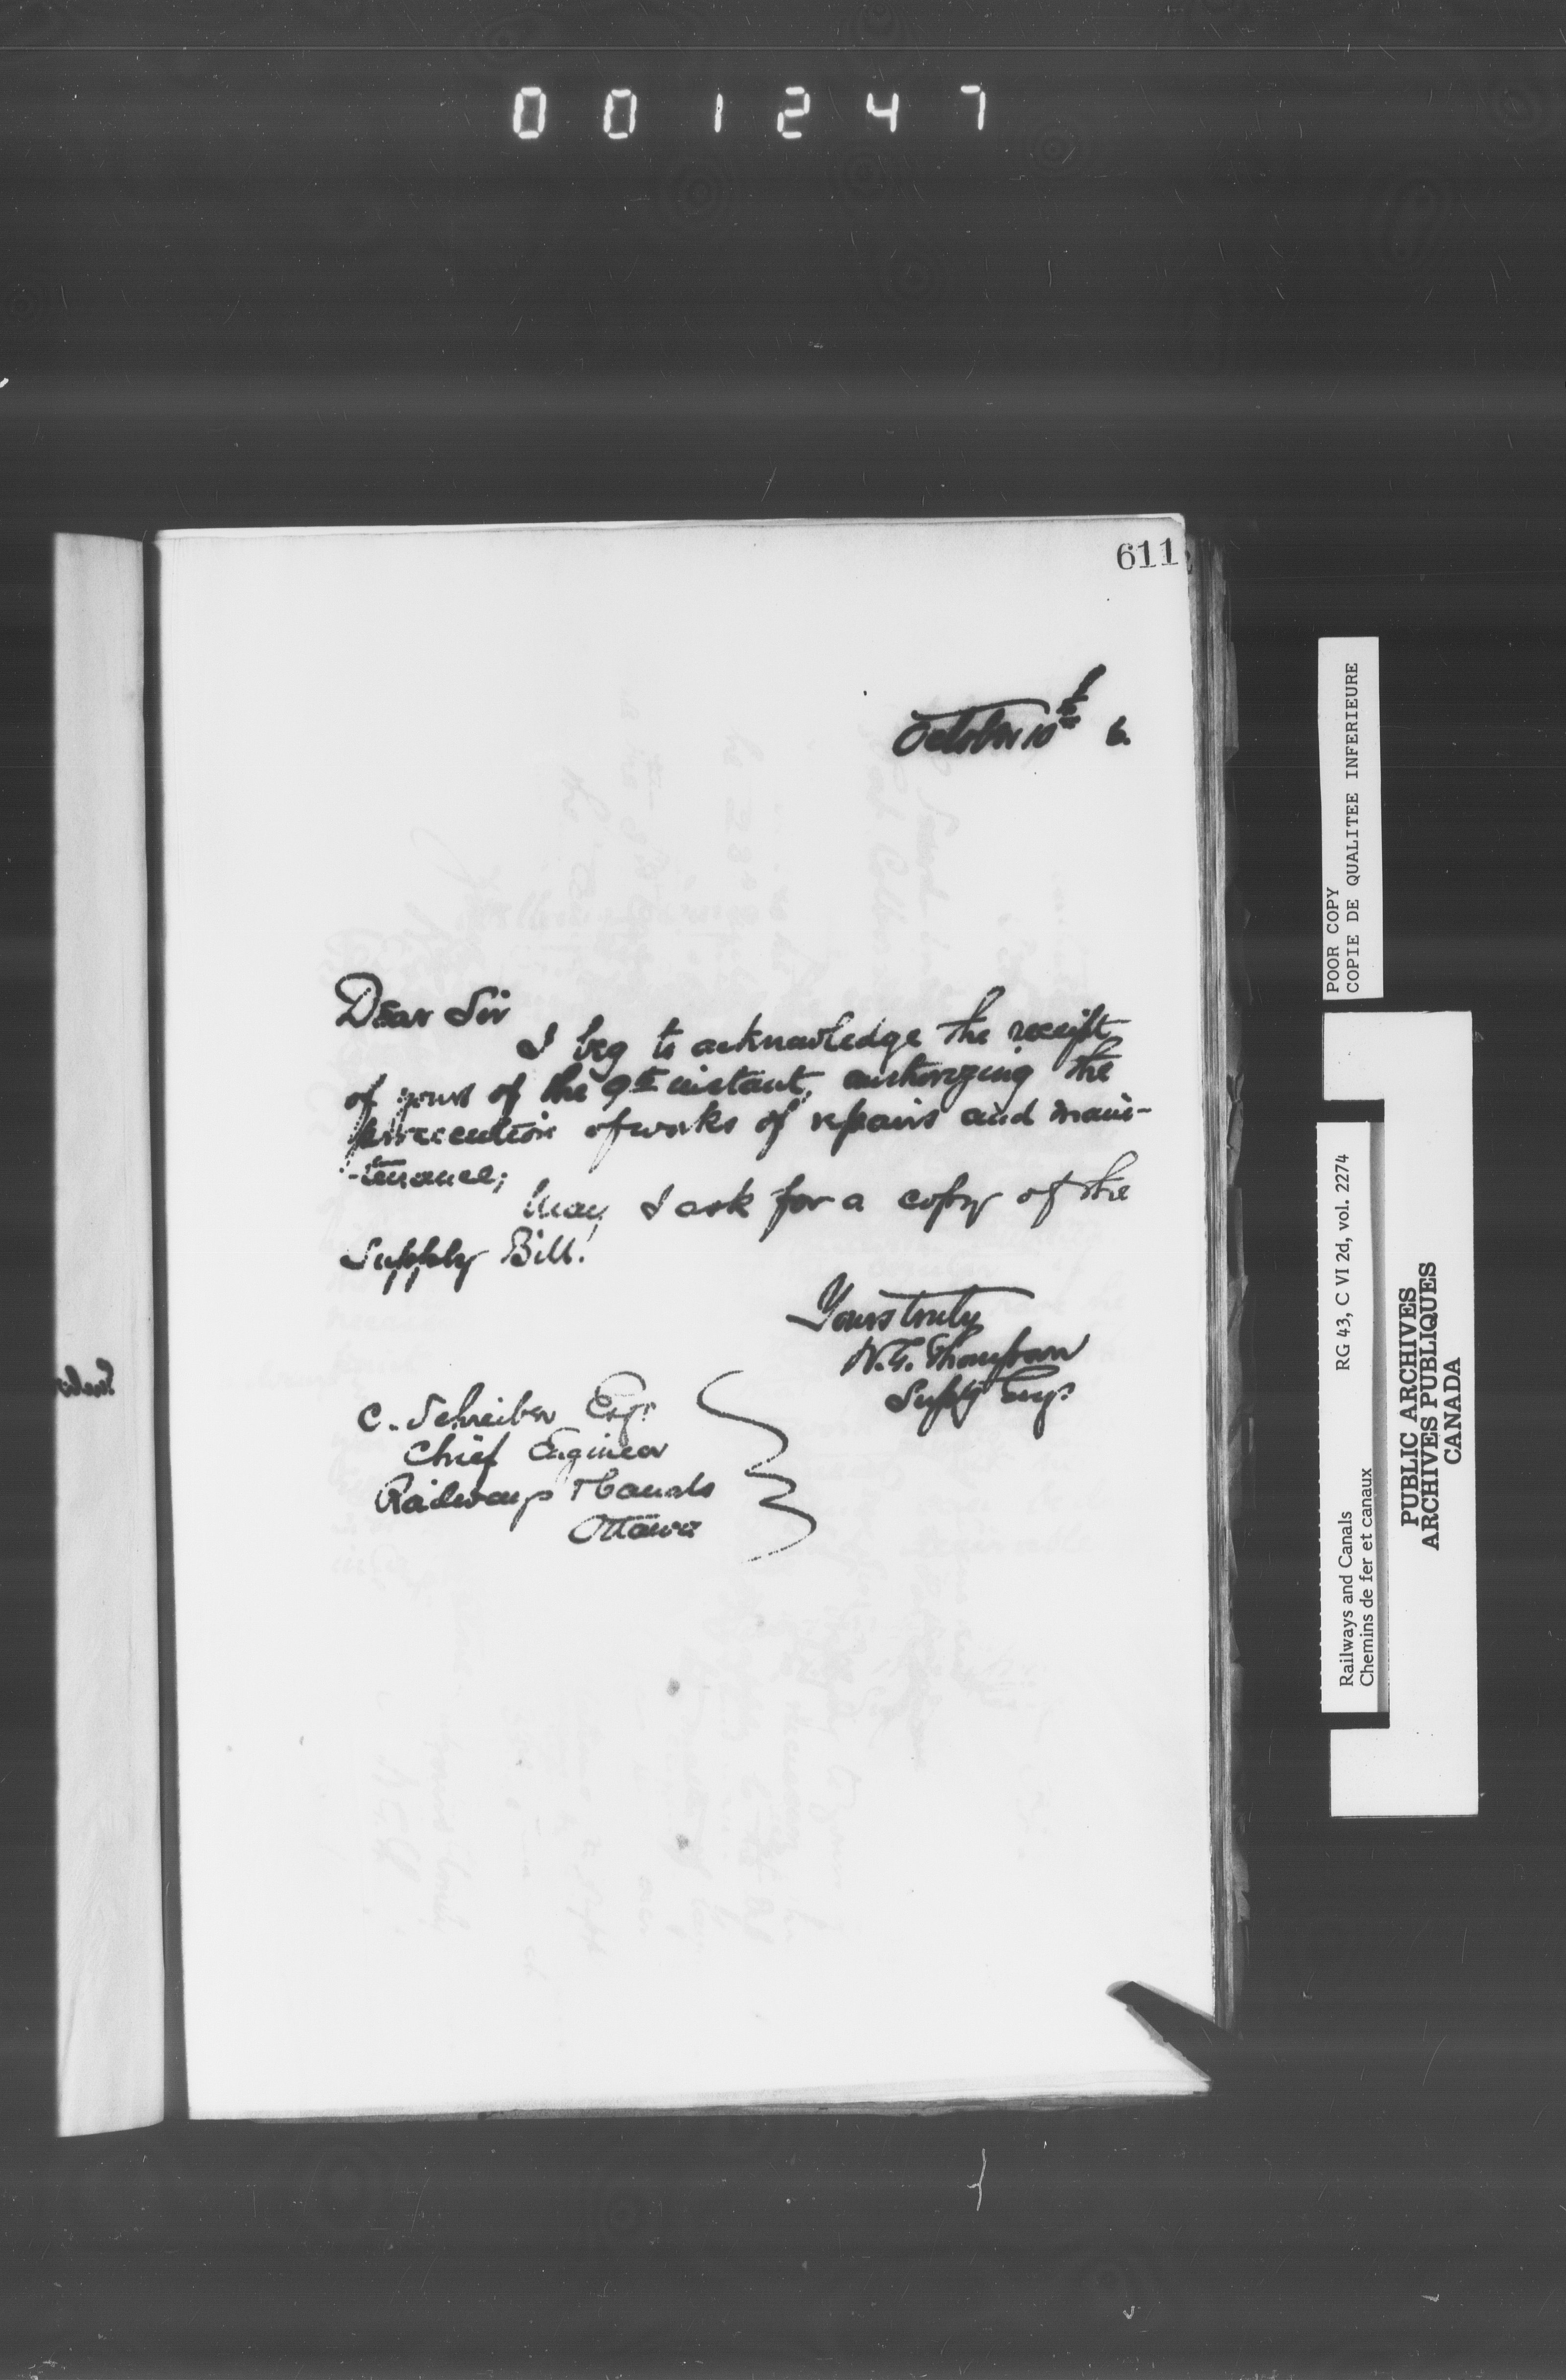 001247
611
October 10th 6.
Dear Sir
I beg to acknowledge the receipt
of yours of the 9th instant, authorizing the
prosecution of works of repairs and main-
-tenance;
May I ask for a copy of the
Supply Bill.
Yours truly
W.G. Thompson
Suptg Engr
C. Schreiber Esqr
Chief Engineer
Railways & Canals
Ottawa
POOR COPY
COPIE DE QUALITEE INFERIEURE
Railways and Canals RG 43, C VI 2d, vol. 2274
Chemins de fer et canaux
PUBLIC ARCHIVES
ARCHIVES PUBLIQUES
CANADA